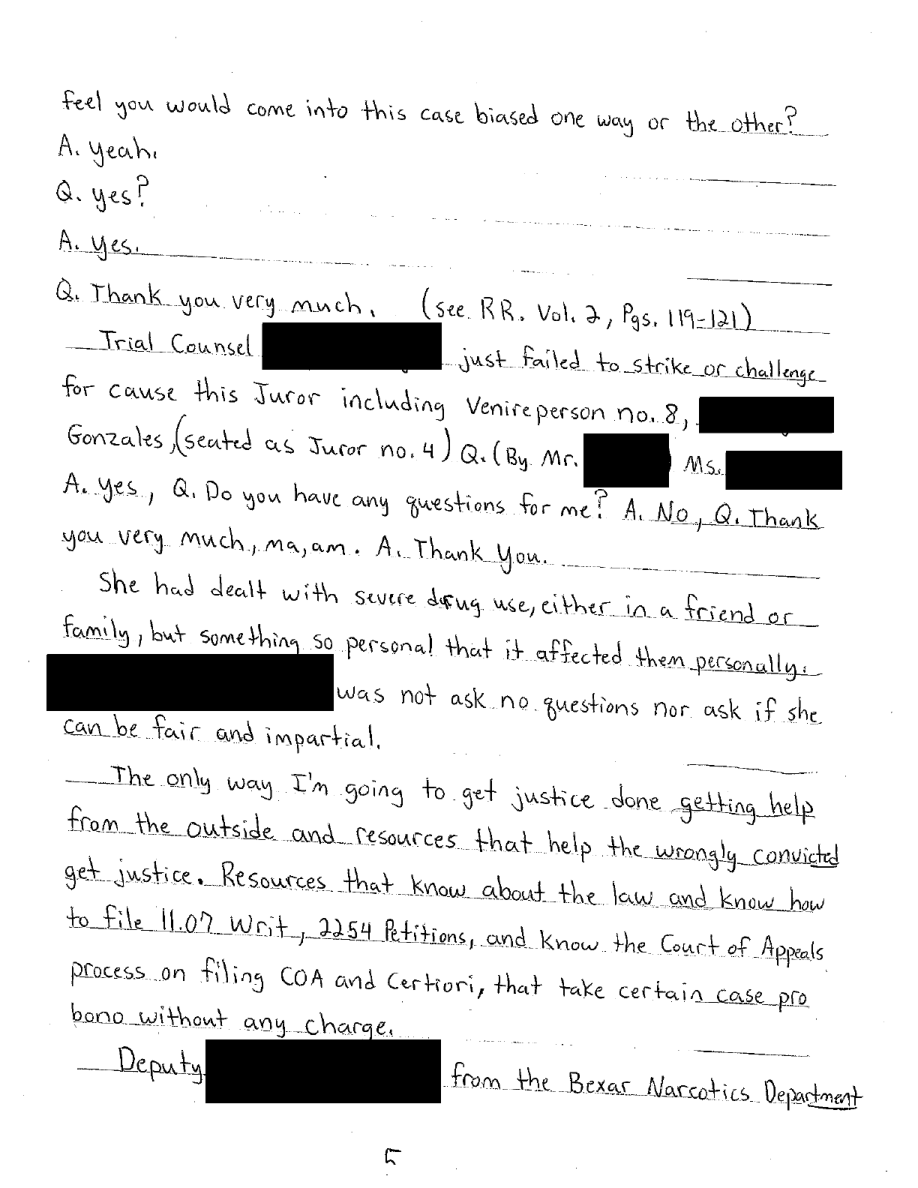 feel you would come into this case biased one way or the other?
A. yeah.
Q. yes?
A. yes.
Q. Thank you very much. (see RR. Vol. 2, Pgs. 119-121)
Trial Counsel just failed to strike or challenge
for cause this Juror including Venireperson no. 8,
Gonzales, (seated as Juror no. 4) Q. (By Mr. Ms.
A. yes, Q. Do you have any questions for me? A. No, Q. Thank
you very much, ma,am. A. Thank You.
She had dealt with severe drug use, either in a friend or
family, but something so personal that it affected them personally.
was not ask no questions nor ask if she
can be fair and impartial.
The only way I'm going to get justice done getting help
from the outside and resources that help the wrongly convicted
get justice. Resources that know about the law and know how
to file 11.07 Writ, 2254 Petitions, and know the Court of Appeals
process on filing COA and Certiori, that take certain case pro
bono without any charge.
Deputy from the Bexar Narcotics Department
5